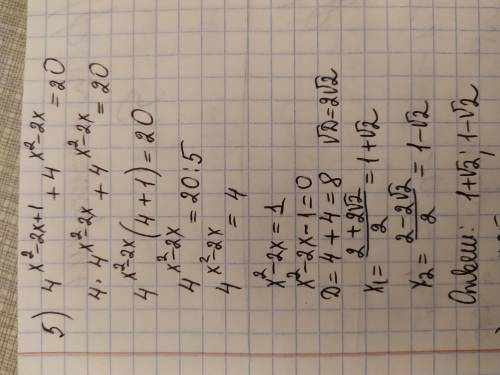 5) 4^{x²-2x+1} + 4^{x²-2x} = 20
4·4^{x²-2x} + 4^{x²-2x} = 20
4^{x²-2x}(4+1) = 20
4^{x²-2x} = 20:5
4^{x²-2x} = 4
x²-2x = 1
x²-2x-1=0
D=4+4=8 √D=2√2
x₁= (2+2√2)/2 = 1+√2
x₂= (2-2√2)/2 = 1-√2
Ответ: 1+√2; 1-√2